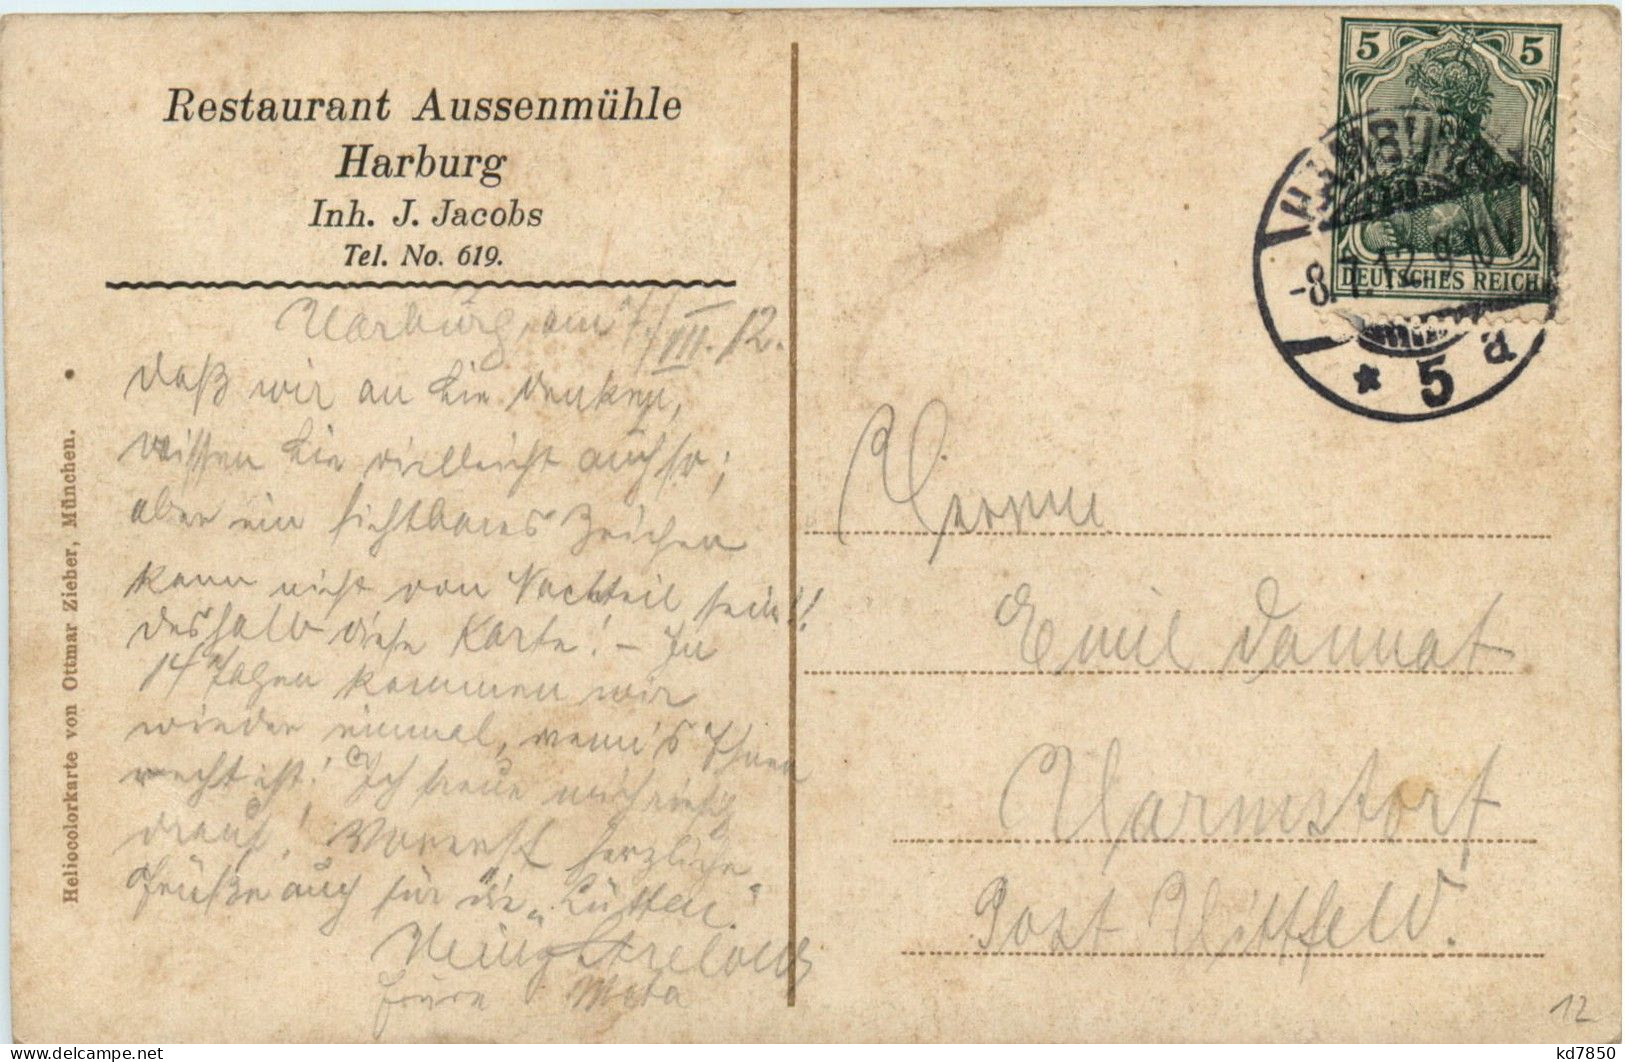 Restaurant Aussenmühle
Harburg
Inh. J. Jacobs
Tel. No. 619.
Harburg, am 7/VII. 12.
daß wir an Sie denken,
wissen Sie vielleicht auch so;
aber ein sichtbares Zeichen
kann nicht von Nachteil sein!!
deshalb diese Karte! – In
14 Tagen kommen wir
wieder einmal, wenn's Ihnen
recht ist! Ich freue mich riesig
drauf! Vorerst herzliche
Grüße auch für die „Lütten"
Meta
Heliocolorkarte von Ottmar Zieber, München.
5 5
DEUTSCHES REICH
HAMBURG
-8.7.12.9-10V
* 5 a
Emil Dannat
Marmstorf
Post Hittfeld.
12
kd7850